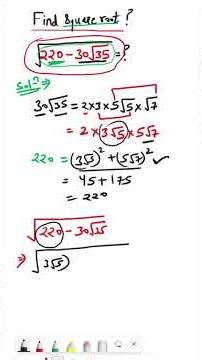 Find Square root ?
√220 - 30√35 = ?
Solⁿ ⇒
30√35 = 2×3×5√5×√7
= 2×(3√5)×5√7
220 = (3√5)² + (5√7)² ✓
= 45 + 175
= 220
√220 - 30√35
⇒ √3√5)